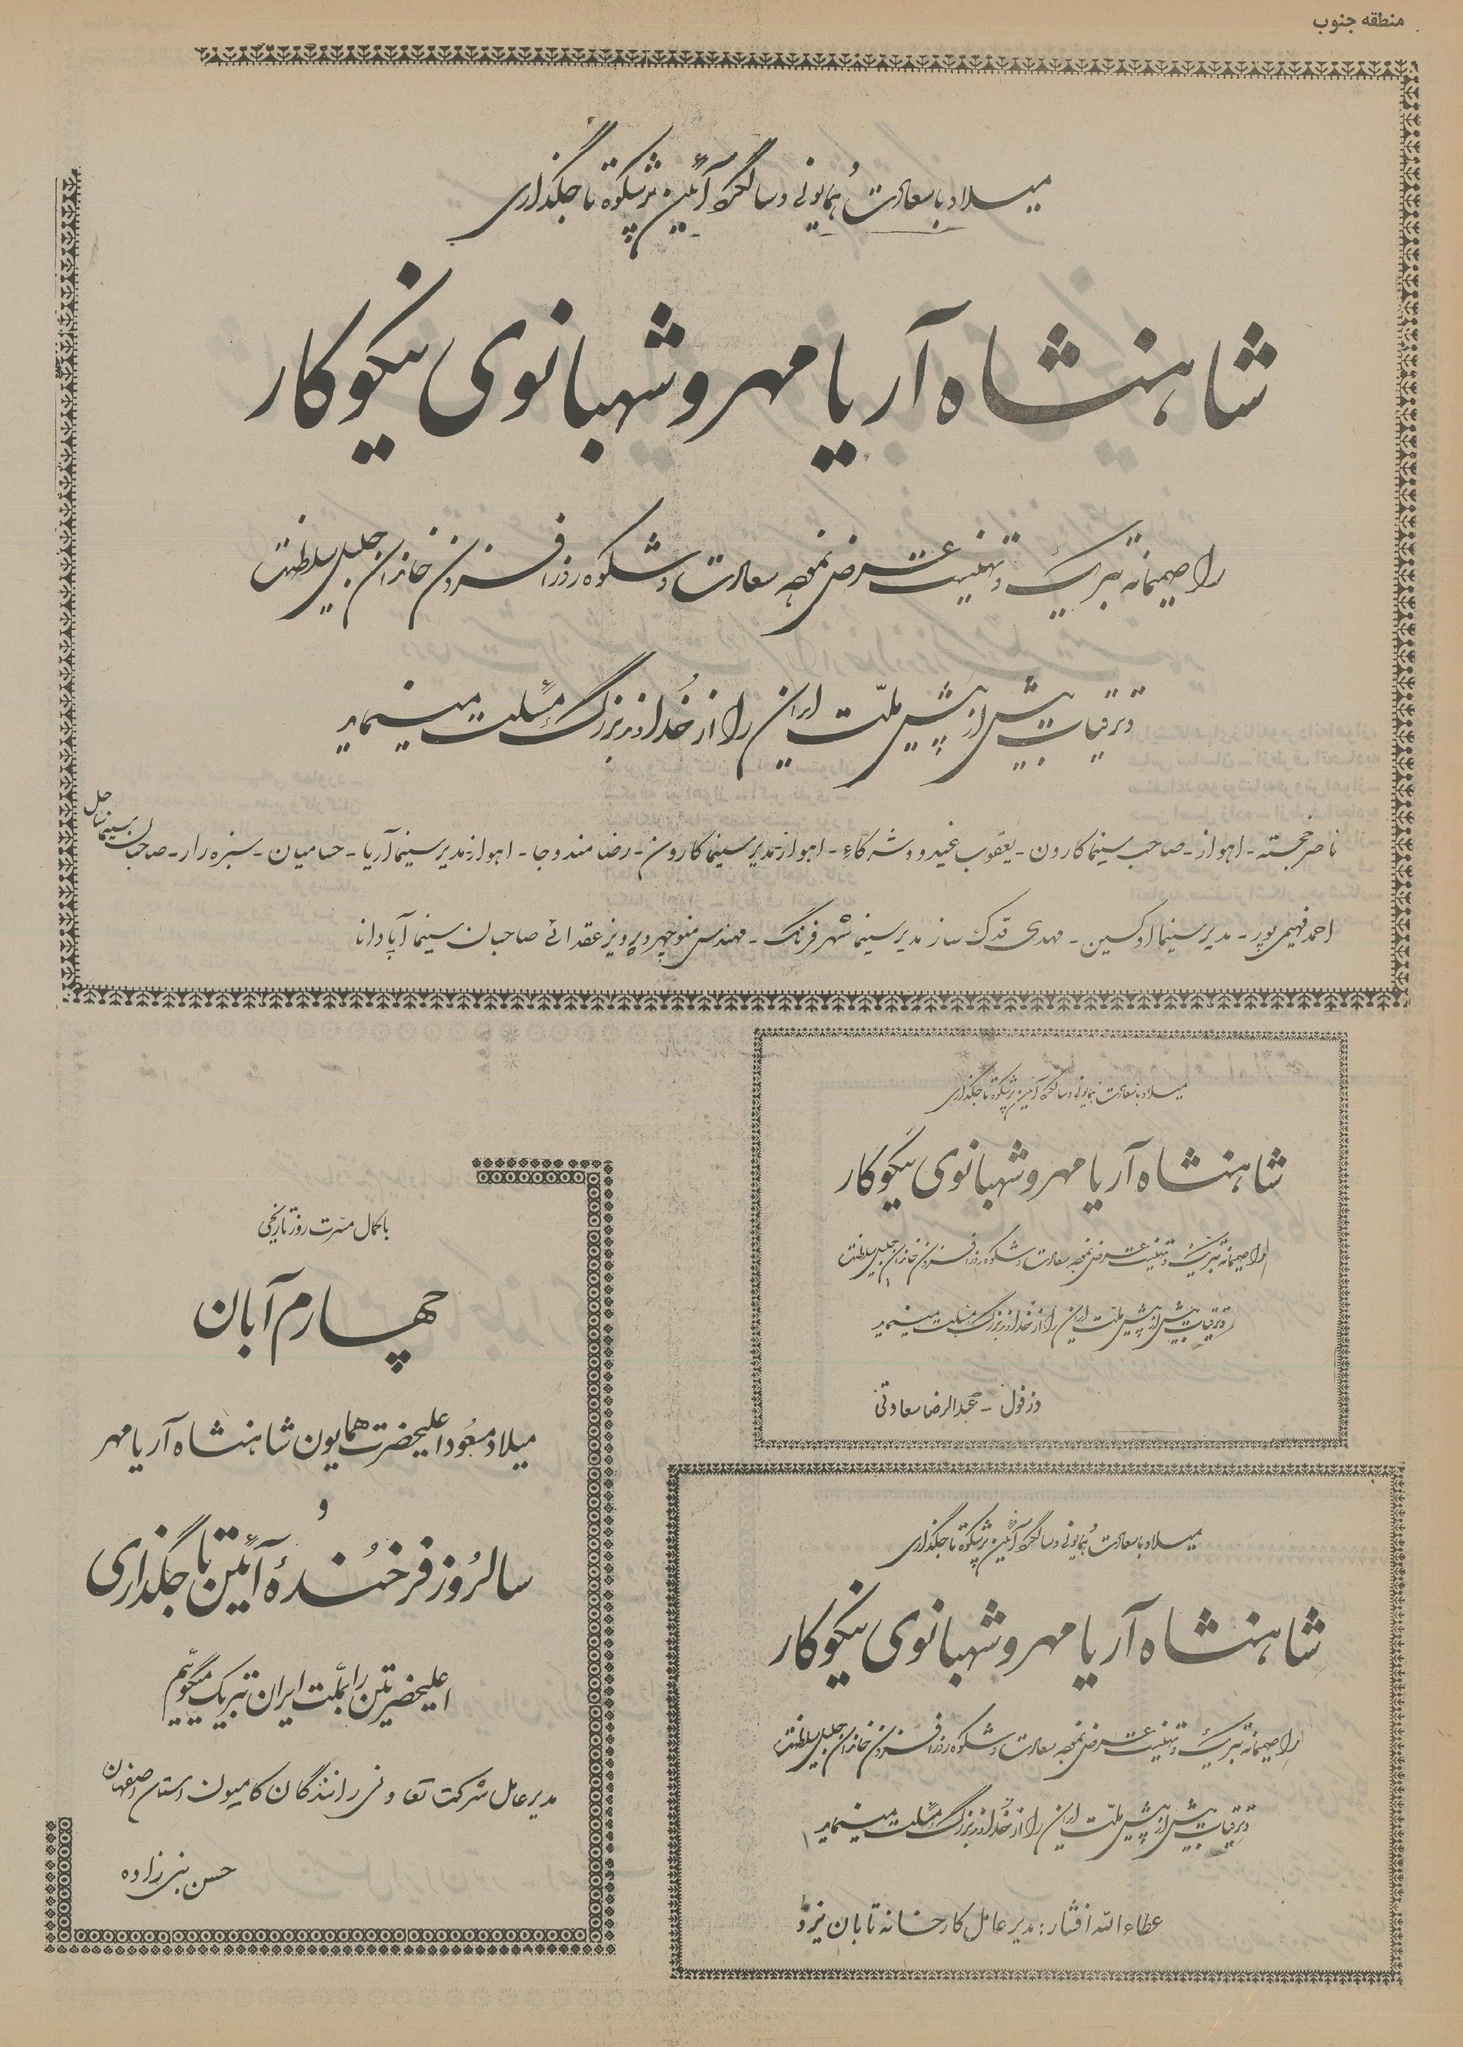 منطقه جنوب
میلاد با سعادت همایونی و سالگرد آئین پرشکوه تاجگذاری
شاهنشاه آریامهر و شهبانوی نیکوکار
را صمیمانه تبریک و تهنیت عرض نموده سعادت و شکوه روزافزون خاندان جلیل سلطنت
و ترقیات بیش از پیش ملّت ایران را از خداوند بزرگ مسئلت مینماید
ناصر خجسته - اهواز - صاحب سینما کارون - یعقوب عیدو و شرکاء - اهواز - مدیر سینما کارون - رضا مندوجا - اهواز - مدیر سینما آریا - حسامیان - سبزه زار - صاحبان سینما ساحل
احمد فهیمی پور - مدیر سینما اوکسین - مهدی قدک ساز مدیر سینما شهر فرنگ - مهندس منوچهر و پرویز عقدائی صاحبان سینما آپادانا
میلاد با سعادت همایونی و سالگرد آئین پرشکوه تاجگذاری
شاهنشاه آریامهر و شهبانوی نیکوکار
را صمیمانه تبریک و تهنیت عرض نموده سعادت و شکوه روزافزون خاندان جلیل سلطنت
و ترقیات بیش از پیش ملت ایران را از خداوند بزرگ مسئلت مینماید
دزفول - عبدالرضا سعادتی
میلاد با سعادت همایونی و سالگرد آئین پرشکوه تاجگذاری
شاهنشاه آریامهر و شهبانوی نیکوکار
را صمیمانه تبریک و تهنیت عرض نموده سعادت و شکوه روزافزون خاندان جلیل سلطنت
و ترقیات بیش از پیش ملّت ایران را از خداوند بزرگ مسئلت مینماید
عطاءالله افشار: مدیر عامل کارخانه تابان یزد
با کمال مسرت روز تاریخی
چهارم آبان
میلاد مسعود اعلیحضرت همایون شاهنشاه آریامهر
و
سالروز فرخنده آئین تاجگذاری
اعلیحضرتین را بملّت ایران تبریک میگوئیم
مدیر عامل شرکت تعاونی رانندگان کامیون استان اصفهان
حسن نبی زاده